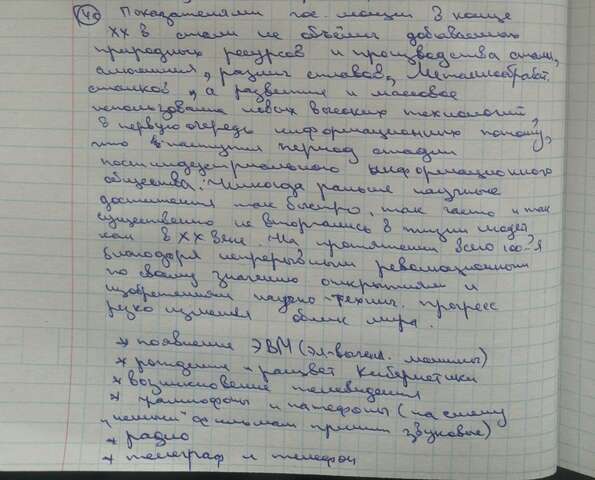 40 Показателями гос. мощи в конце
XX в стали не объёмы добываемого
природных ресурсов и производства стали,
алюминия, разных сплавов, металлообрабат.
станков, а развитие и массовое
использование новых высоких технологий,
в первую очередь информационных потому,
что наступил период стадии
постиндустриального информационного
общества. Никогда раньше научные
достижения так быстро, так часто и так
существенно не вторгались в жизни людей
как в XX веке. На протяжении всего 100
благодаря непрерывным революционным
по своему значению открытиям и
изобретениям научно-технич. прогресс
резко изменил облик мира.
* появление ЭВМ (эл-вычисл. машины)
* рождение и расцвет Кибернетики
* возникновение телевидения
* граммофоны и патефоны (на смену
"немым" фильмам пришли звуковые)
* радио
* телеграф и телефон